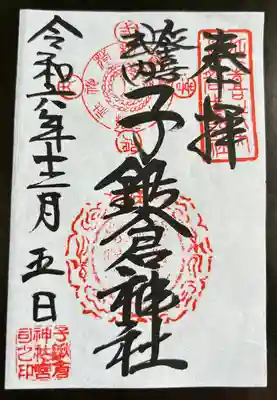 奉拝
延喜
式内
子鍬倉神社
令和六年十二月五日
子鍬倉
神社宮
司之印